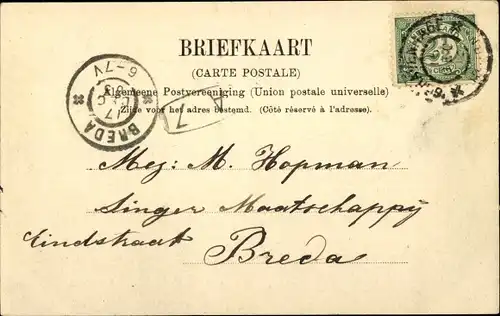 BRIEFKAART
(CARTE POSTALE)
Algemeene Postvereeniging (Union postale universelle)
Zijde voor het adres bestemd. (Côté réservé à l'adresse).
6-7V
17
BREDA
7
A
Mej: M. Hopman
Singer Maatschappij
Eindstraat Breda